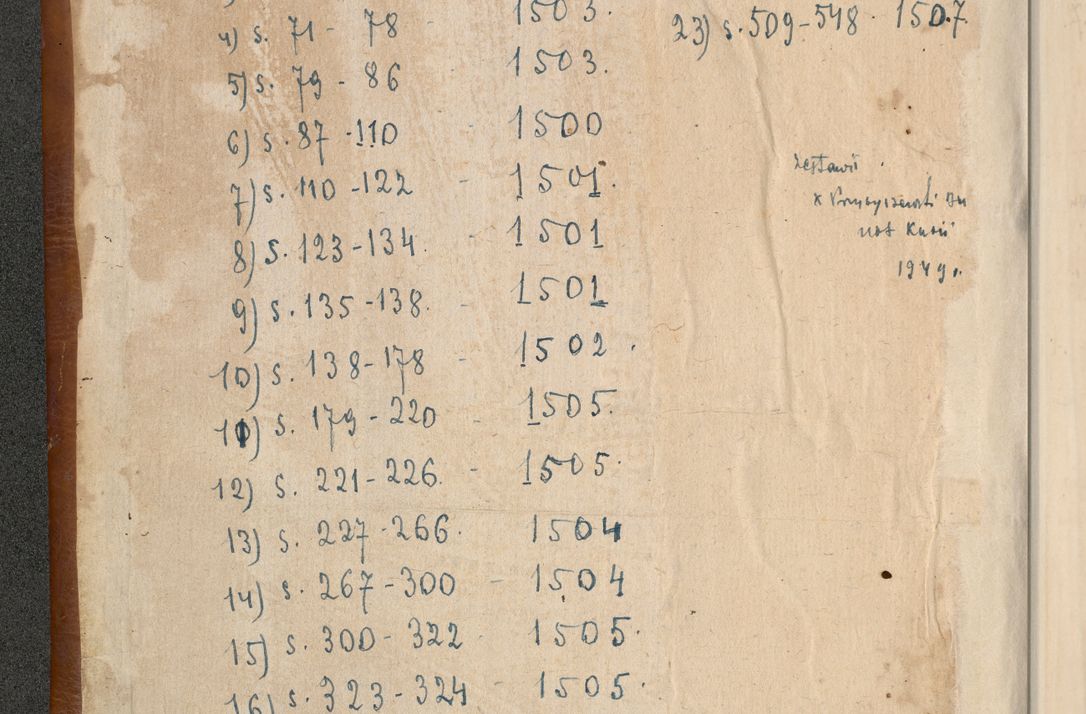 1503.
4) s. 71 - 78
5) s. 79 - 86 - 1503.
6) s. 87 - 110 - 1500
7) s. 110 - 122 - 1501.
8) s. 123 - 134. - 1501
9) s. 135 - 138. - 1501
10) s. 138 - 178 - 1502.
11) s. 179 - 220 - 1505.
12) s. 221 - 226. - 1505.
13) s. 227 - 266. 1504
14) s. 267 - 300 - 1504
15) s. 300 - 322 - 1505.
16) s. 323 - 324 - 1505.
23) s. 509 - 548. 1507.
zestawił
x
not Kurii
1949.